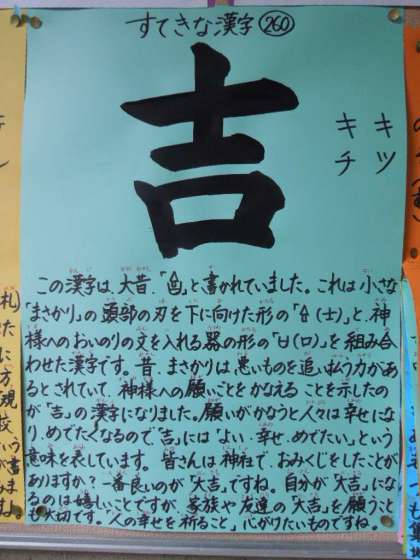 すてきな漢字 260
吉
キツ
キチ
この漢字は、大昔、「𠮷」と書かれていました。これは小さな
「まさかり」の頭部の刃を下に向けた形の「(士)」と、神
様へのおいのりの文を入れる器の形の「ㅂ(口)」を組み合
わせた漢字です。昔、まさかりは悪いものを追い払う力があ
るとされていて、神様への願いごとをかなえることを示したの
が「吉」の漢字になりました。願いがかなうと人々は幸せにな
り、めでたくなるので「吉」には「よい・幸せ・めでたい」という
意味を表しています。皆さんは神社で、おみくじをしたことが
ありますか?一番良いのが「大吉」ですね。自分が「大吉」に
なるのは嬉しいことですが、家族や友達の「大吉」を願うこと
も大切です。「人の幸せを祈ること」心がけたいものですね。